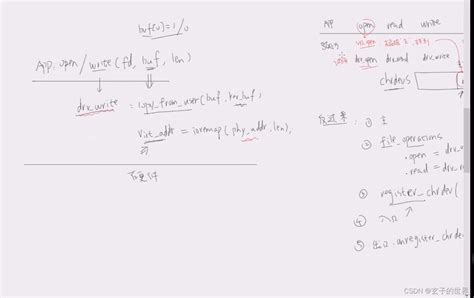 buf[0]=1/0
App: open/write(fd, buf, len)
drv_write : copy_from_user(buf, ker_buf,
virt_addr = ioremap(phy_addr, len),
硬件
APP open read write
drv_open drv_read drv_write
chrdevs
① 主
② file_operations
.open = drv_o
.read = drv_r
③ register_chrdev(
④ 入口
⑤ 出口: unregister_chrdev
CSDN @玄子的世界